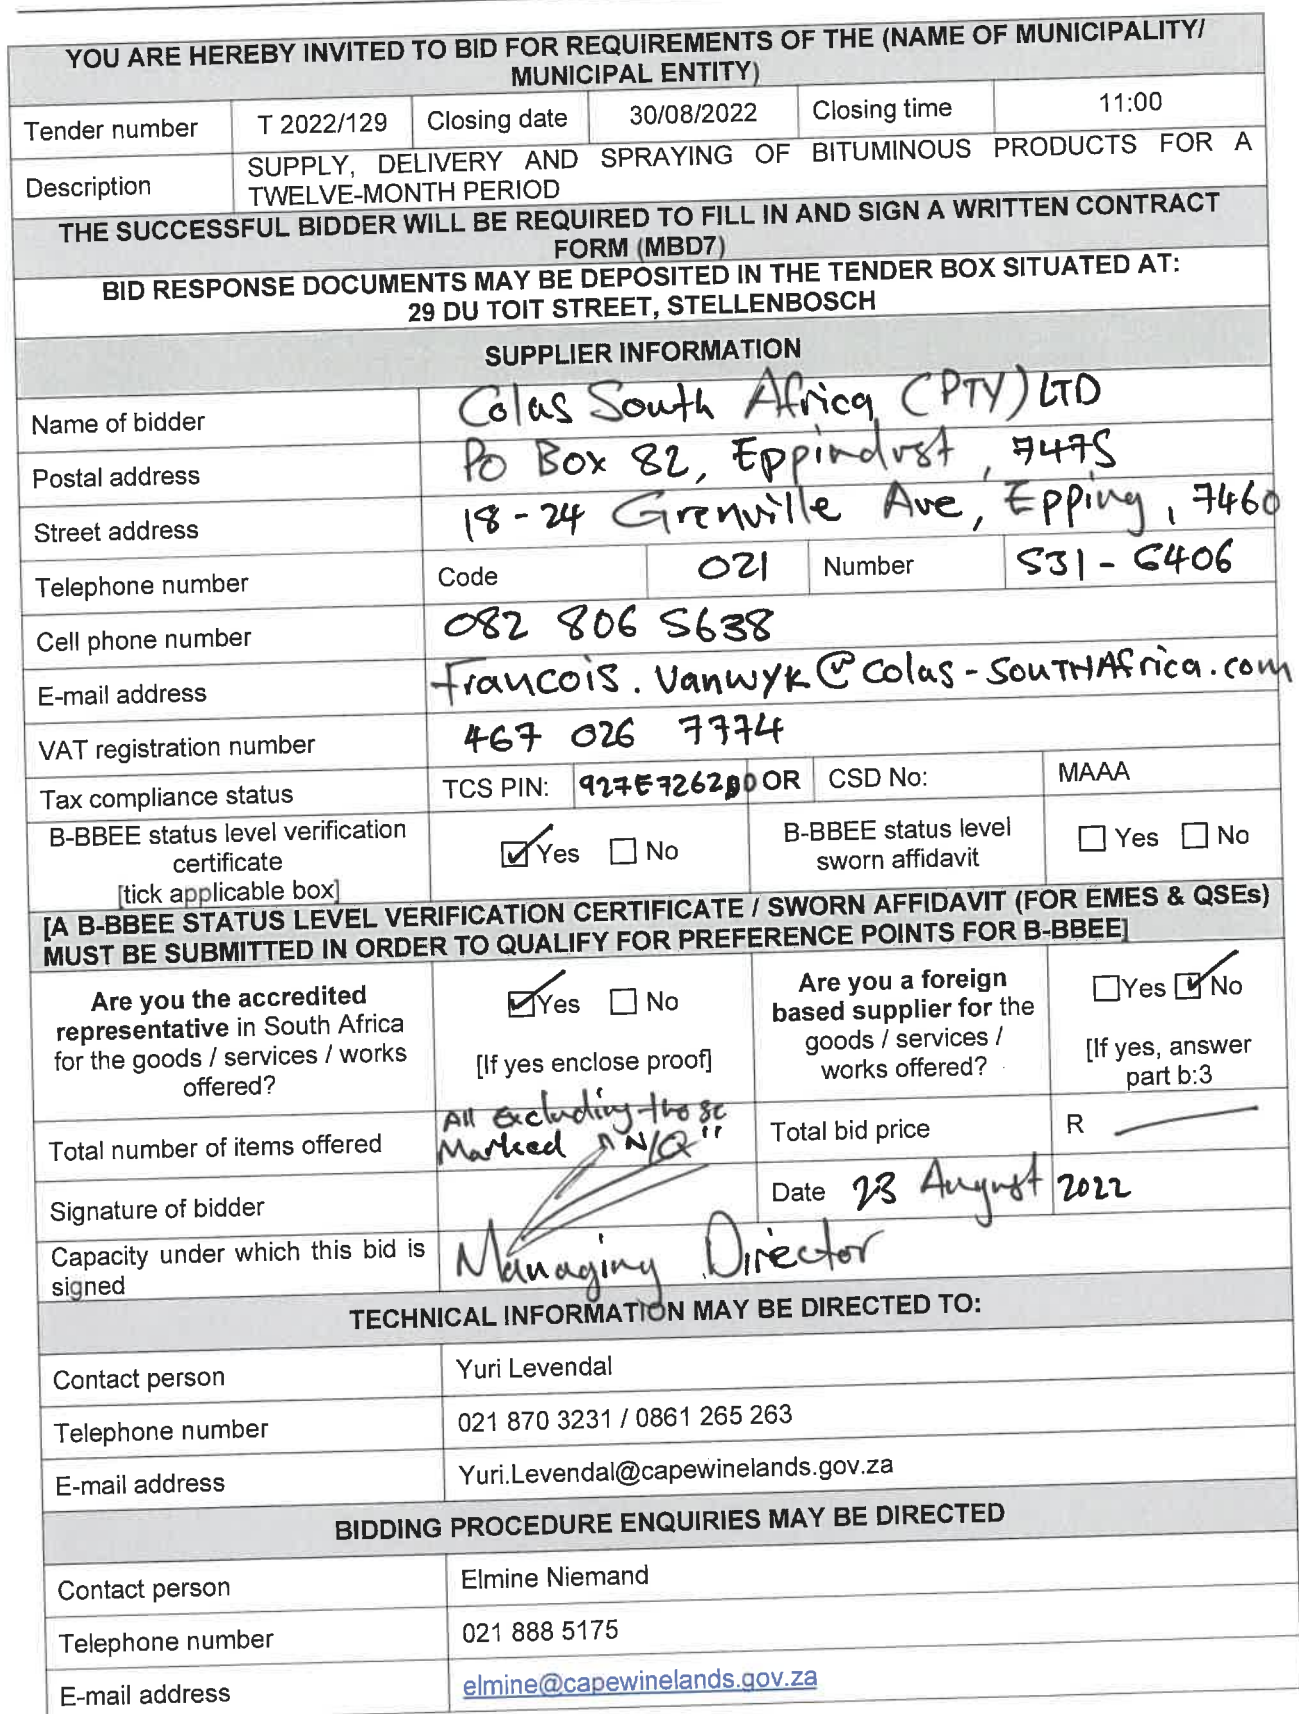 YOU ARE HEREBY INVITED TO BID FOR REQUIREMENTS OF THE (NAME OF MUNICIPALITY/
MUNICIPAL ENTITY)
Tender number T 2022/129 Closing date 30/08/2022 Closing time 11:00
Description SUPPLY, DELIVERY AND SPRAYING OF BITUMINOUS PRODUCTS FOR A
TWELVE-MONTH PERIOD
THE SUCCESSFUL BIDDER WILL BE REQUIRED TO FILL IN AND SIGN A WRITTEN CONTRACT
FORM (MBD7)
BID RESPONSE DOCUMENTS MAY BE DEPOSITED IN THE TENDER BOX SITUATED AT:
29 DU TOIT STREET, STELLENBOSCH
SUPPLIER INFORMATION
Name of bidder Colas South Africa (PTY) LTD
Postal address PO Box 82, Eppindust, 7475
Street address 18-24 Grenville Ave, Epping, 7460
Telephone number Code 021 Number 531-6406
Cell phone number 082 806 5638
E-mail address Francois.Vanwyk@colas-SouTHAfrica.com
VAT registration number 467 026 7774
Tax compliance status TCS PIN: OR CSD No: MAAA
B-BBEE status level verification
certificate
[tick applicable box]
Yes No
B-BBEE status level
sworn affidavit
Yes No
[A B-BBEE STATUS LEVEL VERIFICATION CERTIFICATE / SWORN AFFIDAVIT (FOR EMES & QSEs)
MUST BE SUBMITTED IN ORDER TO QUALIFY FOR PREFERENCE POINTS FOR B-BBEE]
Are you the accredited
representative in South Africa
for the goods / services / works
offered?
Yes No
[If yes enclose proof]
Are you a foreign
based supplier for the
goods / services /
works offered?
Yes No
[If yes, answer
part b:3
Total number of items offered
All excluding those
Marked "N/Q"
Total bid price R
Signature of bidder Date 23 August 2022
Capacity under which this bid is
signed
Managing Director
TECHNICAL INFORMATION MAY BE DIRECTED TO:
Contact person Yuri Levendal
Telephone number 021 870 3231 / 0861 265 263
E-mail address Yuri.Levendal@capewinelands.gov.za
BIDDING PROCEDURE ENQUIRIES MAY BE DIRECTED
Contact person Elmine Niemand
Telephone number 021 888 5175
E-mail address elmine@capewinelands.gov.za